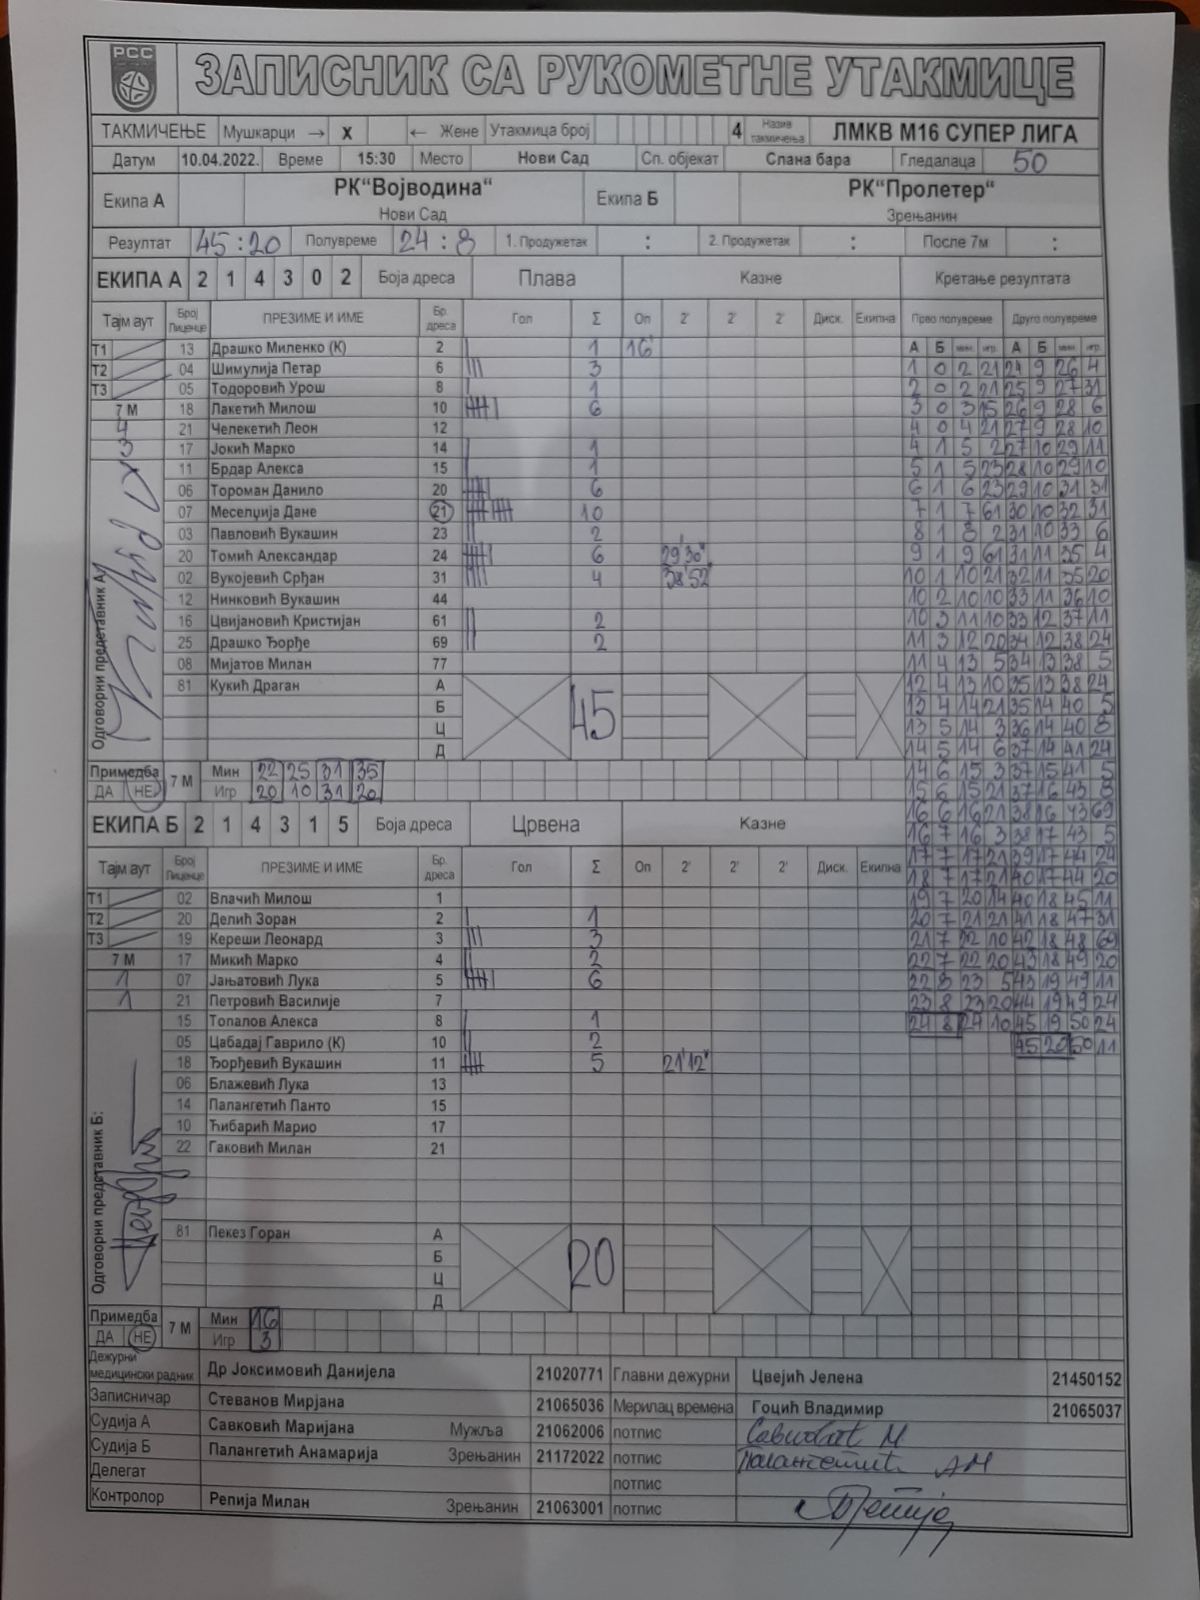 РСС
ЗАПИСНИК СА РУКОМЕТНЕ УТАКМИЦЕ
ТАКМИЧЕЊЕ Мушкарци → X ← Жене Утакмица број 4 Назив такмичења ЛМКВ М16 СУПЕР ЛИГА
Датум 10.04.2022. Време 15:30 Место Нови Сад Сп. објекат Слана бара Гледалаца 50
Екипа А РК“Војводина“ Нови Сад Екипа Б РК“Пролетер“ Зрењанин
Резултат 45:20 Полувреме 24:8 1. Продужетак : 2. Продужетак : После 7м :
ЕКИПА А 2 1 4 3 0 2 Боја дреса Плава Казне Кретање резултата
Тајм аут Број Лиценце ПРЕЗИМЕ И ИМЕ Бр. дреса Гол Σ Оп 2' 2' 2' Диск. Екипна Прво полувреме Друго полувреме
А Б мин. игр. А Б мин. игр.
Т1 13 Драшко Миленко (К) 2 1 16'
Т2 04 Шимулија Петар 6 3 1 0 2 21 24 9 26 4
Т3 05 Тодоровић Урош 8 1 2 0 2 21 25 9 27 31
7 М 18 Пакетић Милош 10 6 3 0 3 15 26 9 28 6
4 21 Челекетић Леон 12 4 0 4 21 27 9 28 10
3 17 Јокић Марко 14 1 4 1 5 2 27 10 29 11
11 Брдар Алекса 15 1 5 1 5 23 28 10 29 10
06 Тороман Данило 20 6 6 1 6 23 29 10 31 31
07 Меселџија Дане 21 10 7 1 7 61 30 10 32 31
03 Павловић Вукашин 23 2 8 1 8 2 31 10 33 6
20 Томић Александар 24 6 29'30" 9 1 9 61 31 11 35 4
02 Вукојевић Срђан 31 4 38'52" 10 1 10 21 32 11 35 20
12 Нинковић Вукашин 44 10 2 10 10 33 11 36 10
16 Цвијановић Кристијан 61 2 10 3 11 10 33 12 37 11
25 Драшко Ђорђе 69 2 11 3 12 20 34 12 38 24
08 Мијатов Милан 77 11 4 13 5 34 13 38 5
81 Кукић Драган А 45 12 4 13 10 35 13 38 24
Б 13 4 14 21 35 14 40 5
Ц 13 5 14 3 36 14 40 8
Д 14 5 14 6 37 14 41 24
Одговорни представник А:
Примедба ДА НЕ 7 М Мин 22 25 31 35 14 6 15 3 37 15 41 5
Игр 20 10 31 20 15 6 15 21 37 16 43 8
ЕКИПА Б 2 1 4 3 1 5 Боја дреса Црвена Казне 16 6 16 21 38 16 43 69
16 7 16 3 38 17 43 5
Тајм аут Број Лиценце ПРЕЗИМЕ И ИМЕ Бр. дреса Гол Σ Оп 2' 2' 2' Диск. Екипна 17 7 17 21 39 17 44 24
18 7 17 21 40 17 44 20
Т1 02 Влачић Милош 1 19 7 20 14 40 18 45 11
Т2 20 Делић Зоран 2 1 20 7 21 21 41 18 47 31
Т3 19 Кереши Леонард 3 3 21 7 22 10 42 18 48 69
7 М 17 Микић Марко 4 2 22 7 22 20 43 18 49 20
1 07 Јањатовић Лука 5 6 22 8 23 5 43 19 49 11
1 21 Петровић Василије 7 23 8 23 20 44 19 49 24
15 Топалов Алекса 8 1 24 8 24 10 45 19 50 24
05 Цабадај Гаврило (К) 10 2 45 20 50 11
18 Ђорђевић Вукашин 11 5 21'12"
06 Блажевић Лука 13
14 Палангетић Панто 15
10 Ћибарић Марио 17
22 Гаковић Милан 21
81 Пекез Горан А 20
Б
Ц
Д
Одговорни представник Б:
Примедба ДА НЕ 7 М Мин 16
Игр 3
Дежурни медицински радник Др Јоксимовић Данијела 21020771 Главни дежурни Цвејић Јелена 21450152
Записничар Стеванов Мирјана 21065036 Мерилац времена Гоцић Владимир 21065037
Судија А Савковић Маријана Мужља 21062006 потпис
Судија Б Палангетић Анамарија Зрењанин 21172022 потпис
Делегат потпис
Контролор Репија Милан Зрењанин 21063001 потпис